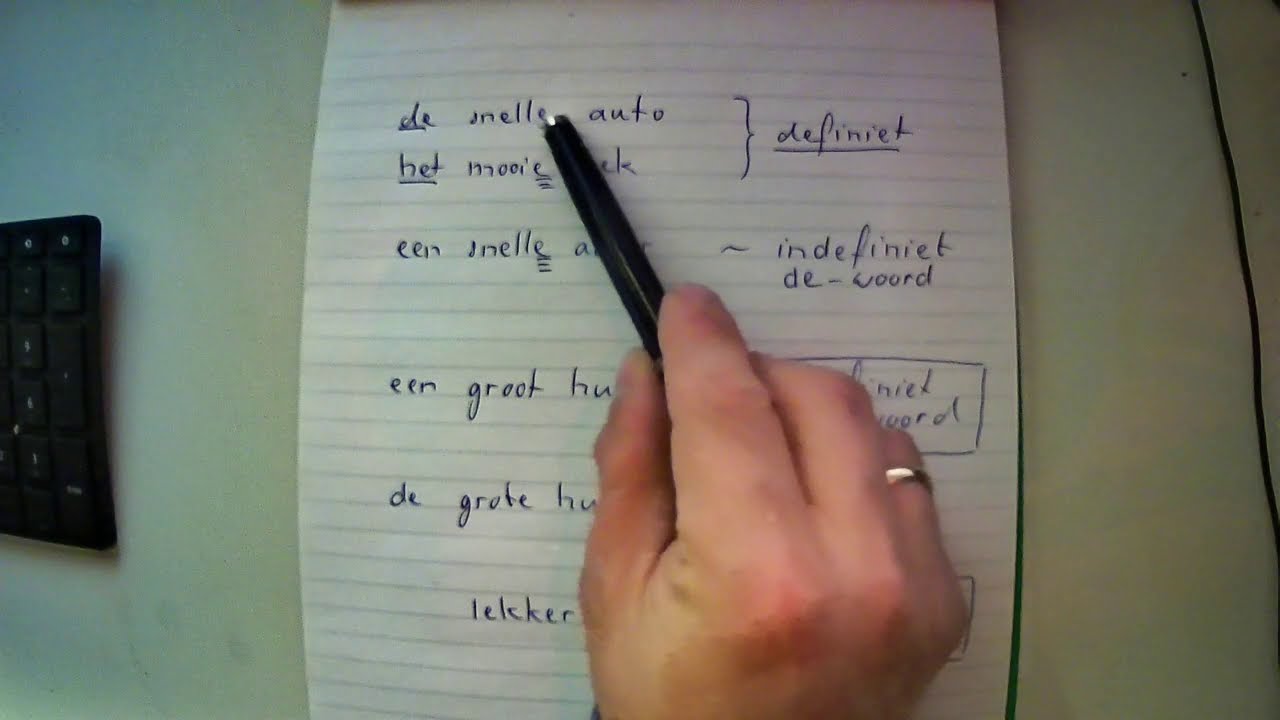 de snelle auto
het mooie
definiet
een snelle
~ indefiniet
de-woord
een groot
de grote
lekker